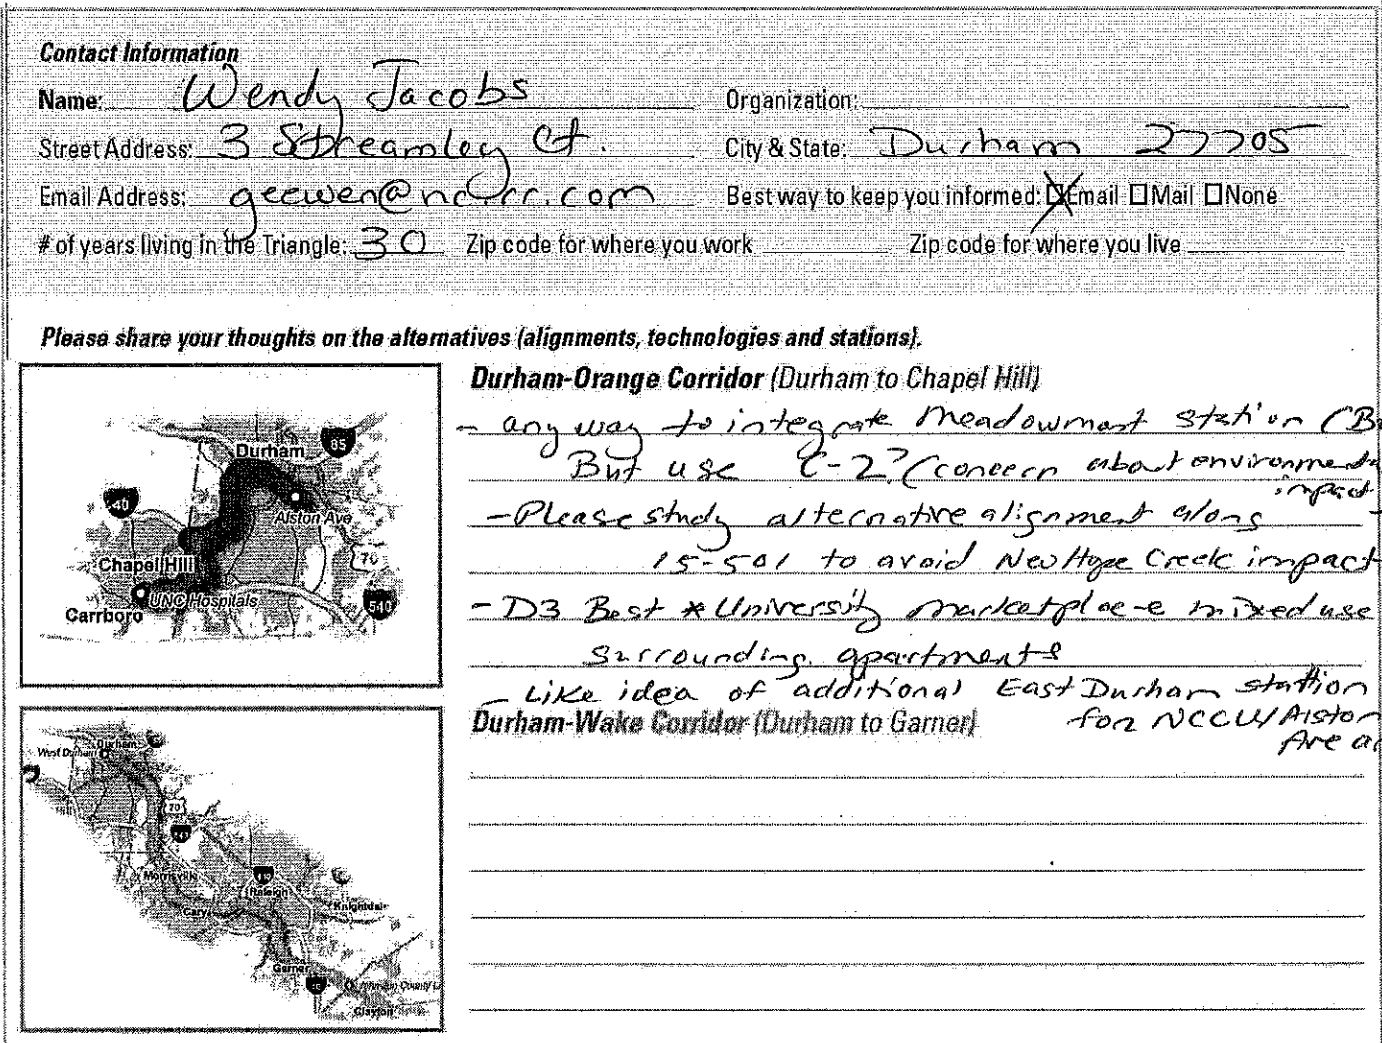 Contact Information
Name: Wendy Jacobs Organization:
Street Address: 3 Streamley Ct. City & State: Durham 27705
Email Address: geewen@nc.rr.com Best way to keep you informed: Email Mail None
# of years living in the Triangle: 30 Zip code for where you work Zip code for where you live
Please share your thoughts on the alternatives (alignments, technologies and stations).
Durham-Orange Corridor (Durham to Chapel Hill)
- any way to integrate Meadowmont station (B
But use C-2? (concern about environmenta
impact
- Please study alternative alignment along
15-501 to avoid New Hope Creek impact
- D3 Best * University marketplace mixed use
surrounding apartments
- Like idea of additional East Durham station
for NCCU/Alston
Area
Durham-Wake Corridor (Durham to Garner)
Durham
85
40
Alston Ave
70
Chapel Hill
UNC Hospitals
Carrboro
540
West Durham
Durham
70
Morrisville
Raleigh
Cary
Knightdale
Garner
Clayton